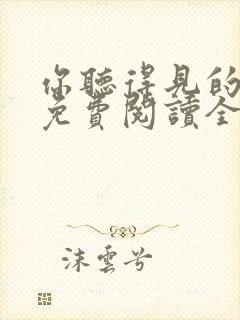 你聽得見的
免費閱讀全
沫雲兮